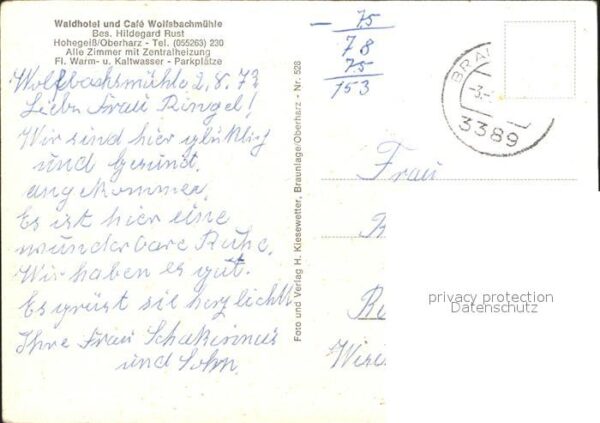 Waldhotel und Café Wolfsbachmühle
Bes. Hildegard Rust
Hohegeiß/Oberharz - Tel. (055263) 230
Alle Zimmer mit Zentralheizung
Fl. Warm- u. Kaltwasser - Parkplätze
Wolfbachsmühle 2.8.73
Liebe Frau Ringel!
Wir sind hier glüklich
und gesund.
angekommen,
Es ist hier eine
wunderbare Ruhe.
Wir haben es gut.
Es grüst sie herzlichst
Ihre Frau
und Sohn.
Foto und Verlag H. Kiesewetter, Braunlage/Oberharz - Nr. 528
- 75
78
75
153
BRA
3389
Frau
privacy protection
Datenschutz